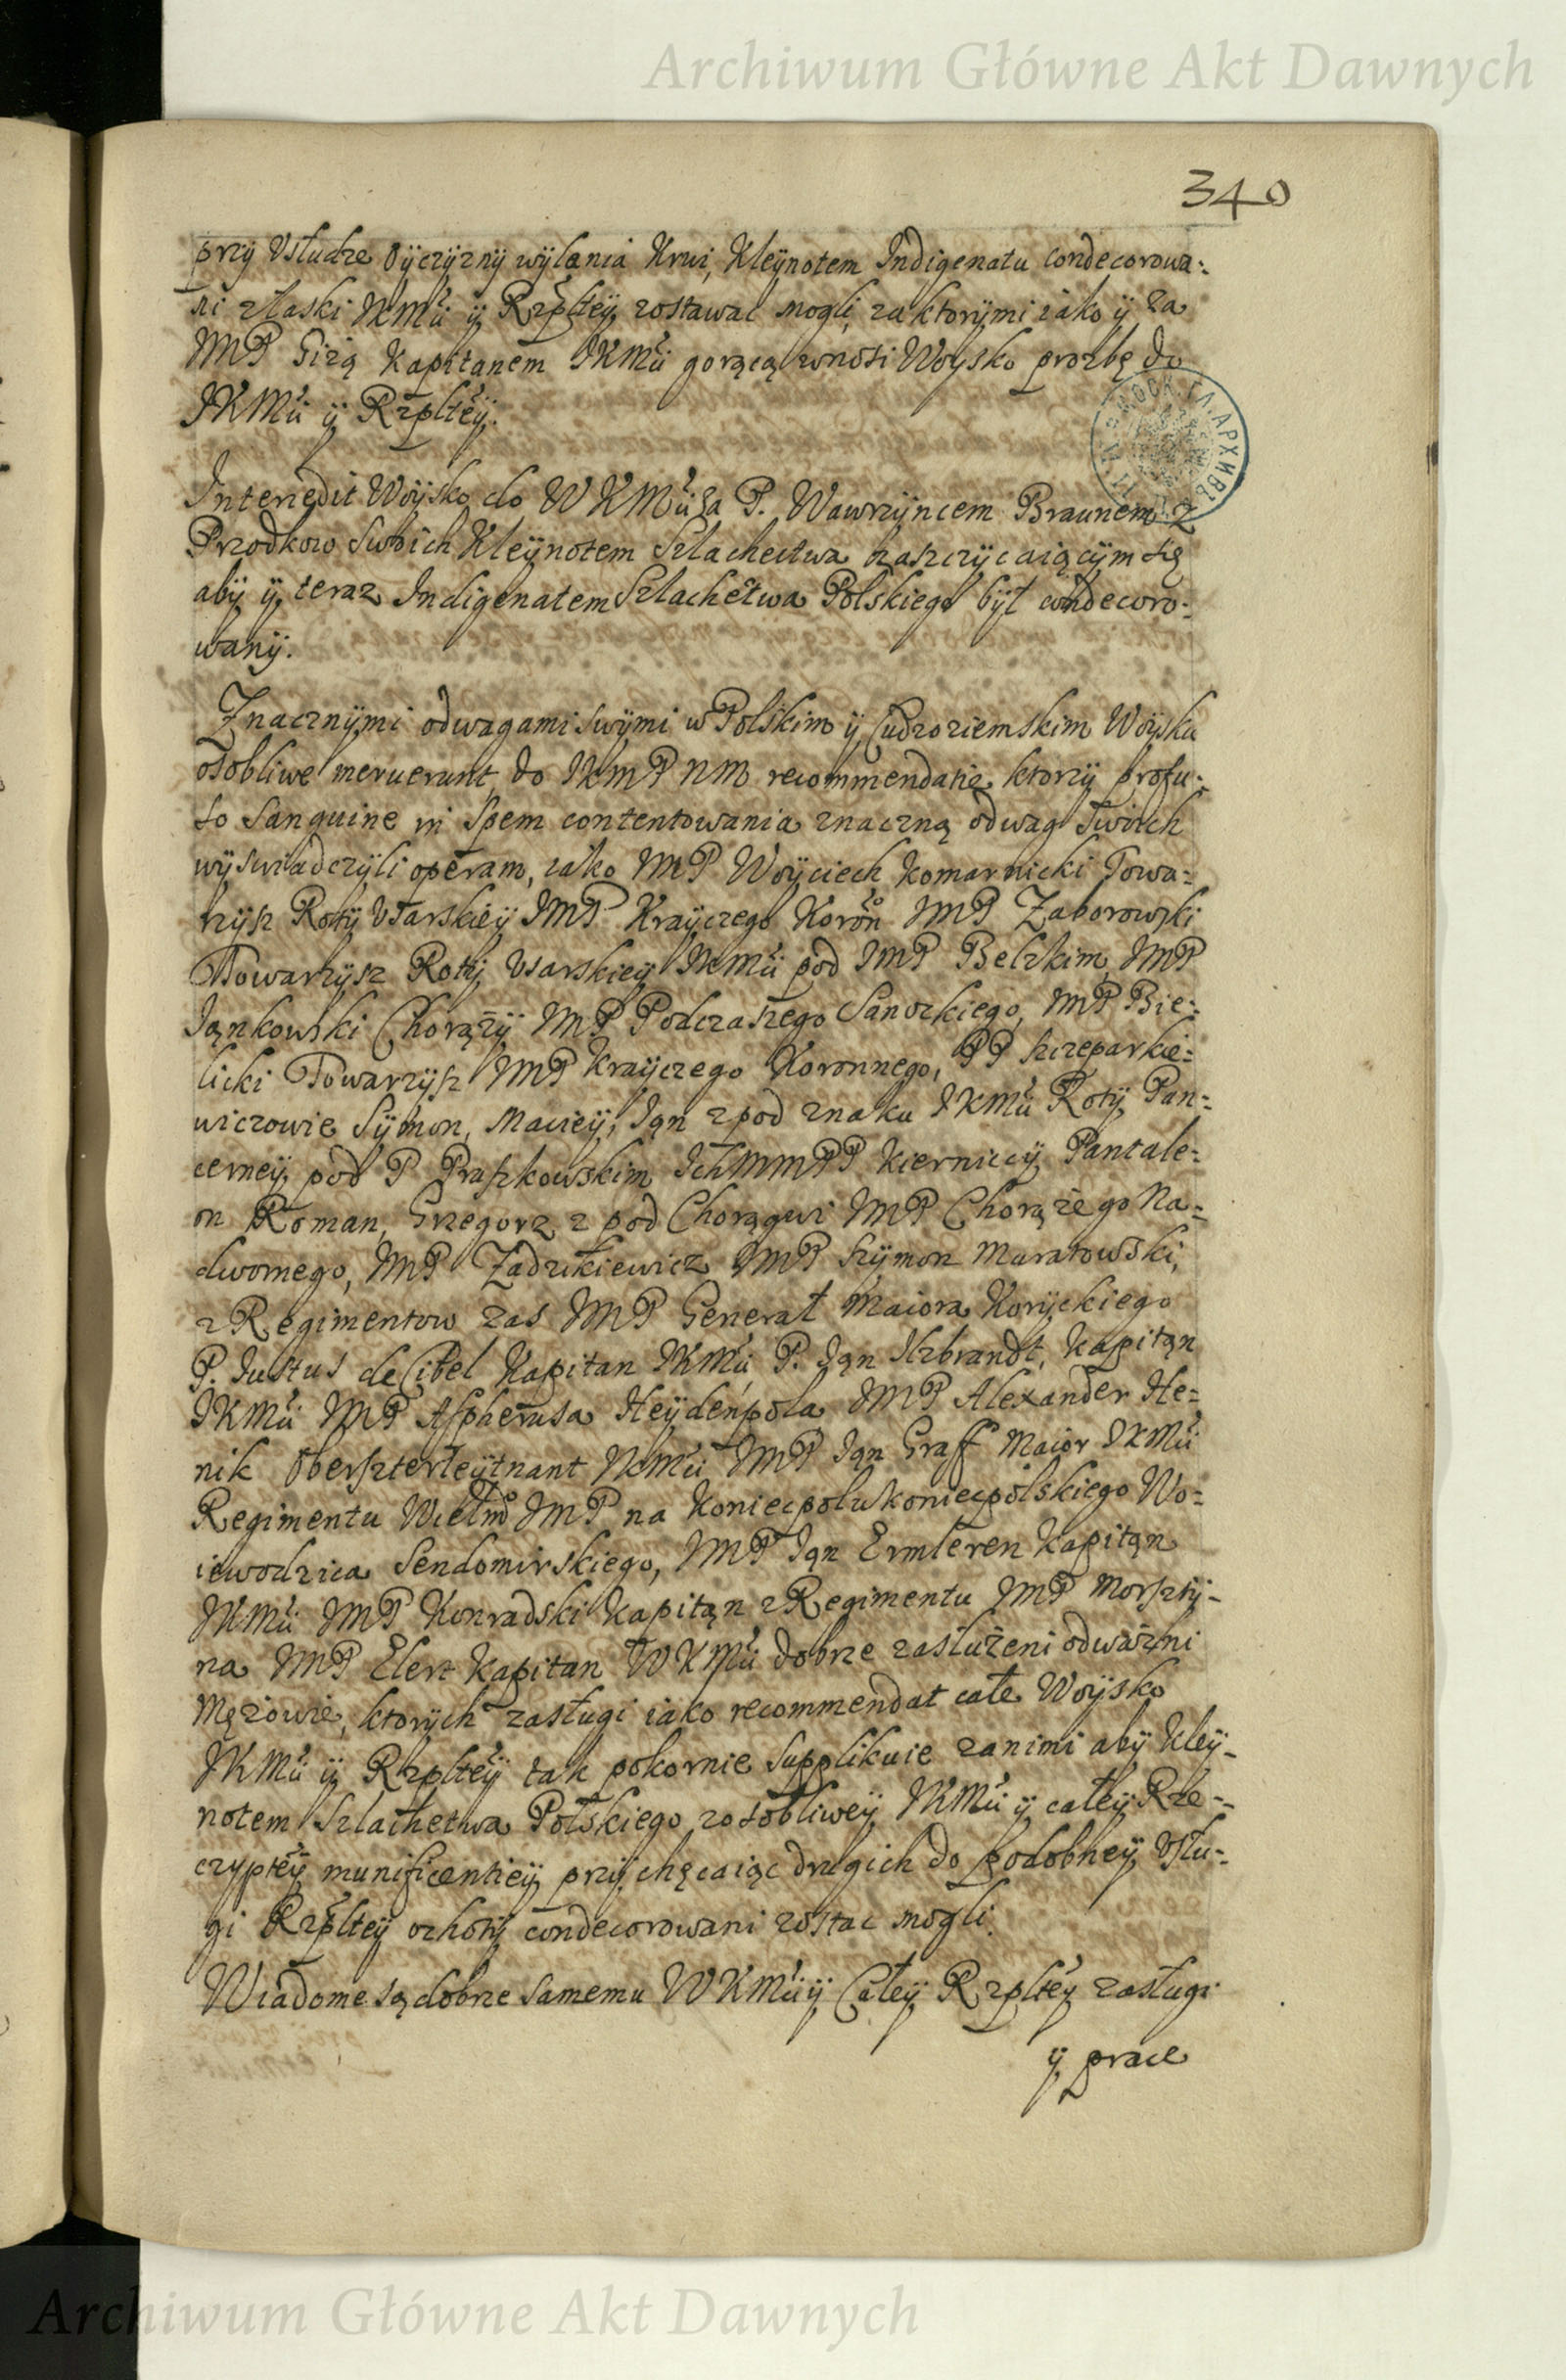 Archiwum Główne Akt Dawnych
340
przÿ Vsłudze Oÿczÿznÿ wÿlania Krwi, Kleÿnotem Indigenatu condecorowa-
ni z łaski IKMći ÿ Rzpłteÿ zostawac mogli, za ktorÿmi iako ÿ za
IMP Gizą Kapitanem IKMći gorącą wnosi Woÿsko prozbę do
IKMći ÿ Rzpłteÿ.
Intercedit Woÿsko do WKMći za P. Wawrzÿncem Braunem z
Przodkow Swoich Kleÿnotem Szlachectwa zaszczÿcaiącÿm się
abÿ ÿ teraz Indigenatem Szlachectwa Polskiego bÿł condecoro-
wanÿ.
Znacznÿmi odwagami swÿmi w Polskim ÿ Cudzoziemskim Woÿsku
osobliwe meruerunt do IKMP NM recommendatie, ktorzÿ profu-
so Sanguine in Spem contentowania znaczną odwag swoich
wÿswiadczÿli operam, iako IMP Woÿciech Komarnicki Towa-
rzÿsz Rotÿ Vsarskieÿ IMP Kraÿczego Koron IMP Zaborowski
Towarzÿsz Rotÿ Vsarskieÿ IKMći pod IMP Belzkim, IMP
Iąnkowski Chorązÿ IMP Podczaszego Sanockiego, IMP Bie-
licki Towarzÿsz IMP Kraÿczego Koronnego, PP Szczeparkie-
wiczowie Sÿmon, Macieÿ, Ian z pod znaku IKMći Rotÿ Pan-
cerneÿ pod P Praszkowskim IchMMPP Kierniccÿ Pantale-
on Roman, Grzegorz z pod Chorągwi IMP Chorążego Na-
dwornego, IMP Zadzikiewicz IMP Szÿmon Muratowski,
z Regimentow zas IMP Generał Maiora Korÿckiego
P. Iustus de Cibel Kapitan IKMći P. Ian Ilzbrandt, Kapitąn
IKMći IMP Aspherusa Heÿdenpola IMP Alexander He-
nik Oberszterleÿtnant IKMći IMP Iąn Graff Maior IKMći
Regimentu Wielm IMP na Koniecpolu Koniecpolskiego Wo-
iewodzica Sendomirskiego, IMP Iąn Ermleren Kapitąn
IKMći IMP Konradski Kapitąn z Regimentu IMP Morsztÿ-
na IMP Elert Kapitan WKMći dobrze zasłużeni odważni
Mężowie, ktorÿch zasługi iako recommendat całe Woÿsko
IKMći ÿ Rzpłteÿ tak pokornie Supplikuie za nimi abÿ Kleÿ-
notem Szlachetwa Polskiego z osobliweÿ IKMći ÿ całeÿ Rze-
czypłteÿ munificentieÿ przÿchęcaiąc drugich do podobneÿ Vsłu-
gi Rzpłteÿ ochotÿ condecorowani zostac mogli.
Wiadome są dobrze Samemu WKMći ÿ Całeÿ Rzpłteÿ zasługi
ÿ prace
Archiwum Główne Akt Dawnych